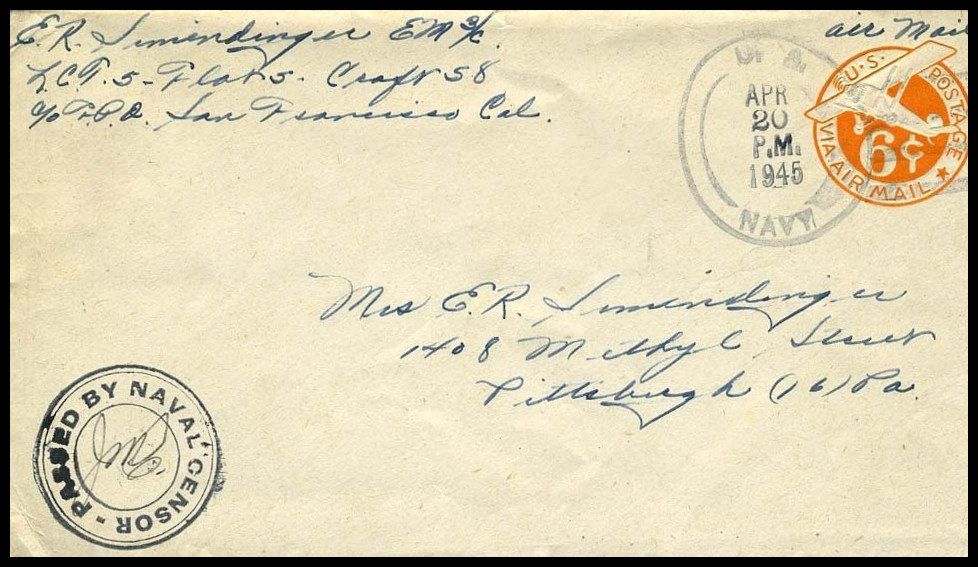 E.R. Simendinger EM 3/c
air Mail
L.C.T. 5 - Flot 5 - Craft 58
c/o F.P.O. San Francisco Cal.
U.S. POSTAGE
6¢
VIA AIR MAIL
APR
20
P.M.
1945
NAVY
Mrs E.R. Simendinger
1408 Methyl Street
Pittsburgh (16) Pa.
PASSED BY NAVAL CENSOR